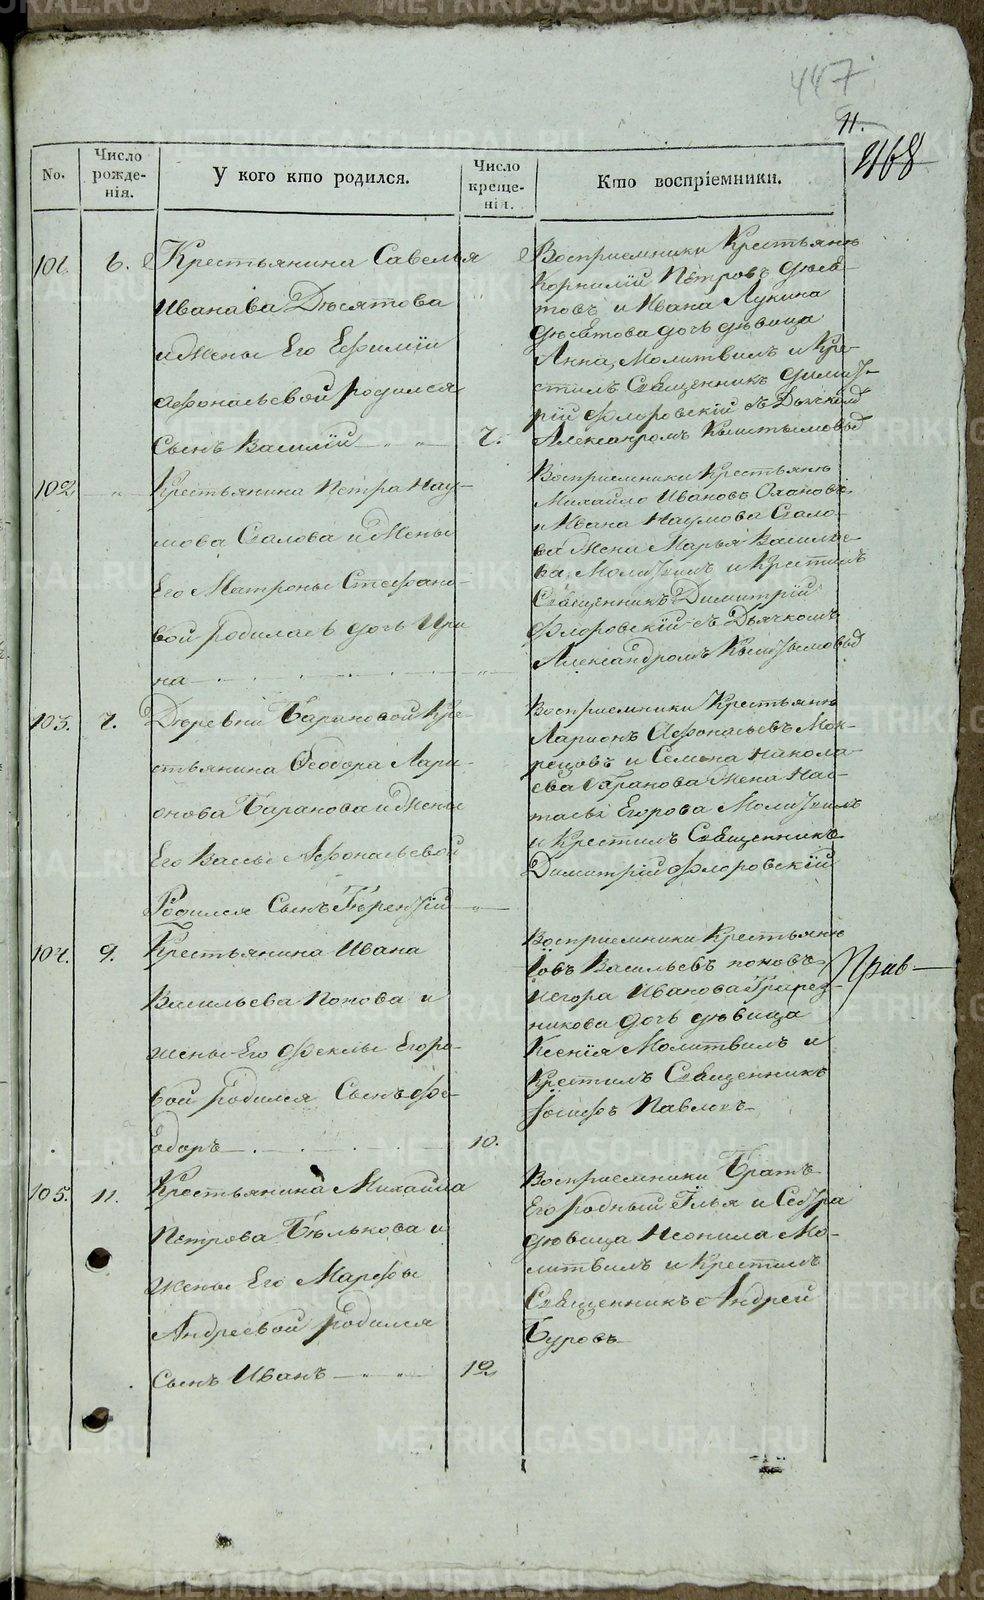 447
11.
2168
No.
Число рожде-нія.
У кого кто родился.
Число креще-нія.
Кто воспріемники.
101.
6.
Крестьянина Савелья
Иванава Дѣсятова
и Жены Его Ефиміи
Афонасьевой родился
Сынъ Василій
7.
Восприемники Крестьянѣ
Корнилій Пѣтровъ
товъ и Ивана Лукина
дочь дѣвица
Анна, Молитвилъ и Кре-
стилъ Священникъ Димит-
рій Флоровскій съ Дьячкомъ
Александромъ
102
Крестьянина Пѣтра Нау-
мова Салова и Жены
Его Матроны Стефано-
вой родилась дочь Ири
на
Восприемники Крестьянѣ
Михайло Ивановъ
и Ивана Наумова Сало-
ва Жена Марья Василье-
ва, Молитвилъ и Крестилъ
Священникъ Димитрій
Флоровскій съ Дьячкомъ
Александромъ
103.
7.
Дѣревни Барановой Кре-
стьянина Феодора Лари-
онова Баранова и Жены
Его Васы Афонасьевой
Родился Сынъ Тѣрентій
Восприемники Крестьянѣ
Ларионъ Афонасьевъ Мок-
рецовъ и Семена Никола-
ева Баранова Жена Нас-
тасья Егорова Молитвилъ
и Крестилъ Священникъ
Димитрій Флоровскій
104.
9.
Крестьянина Ивана
Васильева Попова и
жены Его Феклы Егоро-
вой родился Сынъ Фе-
одоръ
10.
Восприемники Крестьянѣ
Іовъ Васильевъ поповъ,
Иегора Иванова
никова дочь дѣвица
Ксенія Молитвилъ и
Крестилъ Священникъ
Іосифъ Павловъ
Прав-
105.
11.
Крестьянина Михайла
Пѣтрова Бѣлькова и
жены Его Марфы
Андреевой родился
сынъ Иванъ
12
Восприемники Братъ
Его родный Илья и Сестра
дѣвица Неонила Мо-
литвилъ и Крестилъ
Священникъ Андрей
Буровъ
METRIKI.GASO-URAL.RU